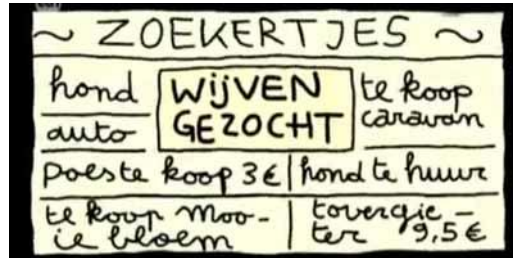 ~ ZOEKERTJES ~
hond
auto
WIJVEN
GEZOCHT
te koop
caravan
poes te koop 3€
hond te huur
te koop moo-
ie bloem
tovergie-
ter 9,5€